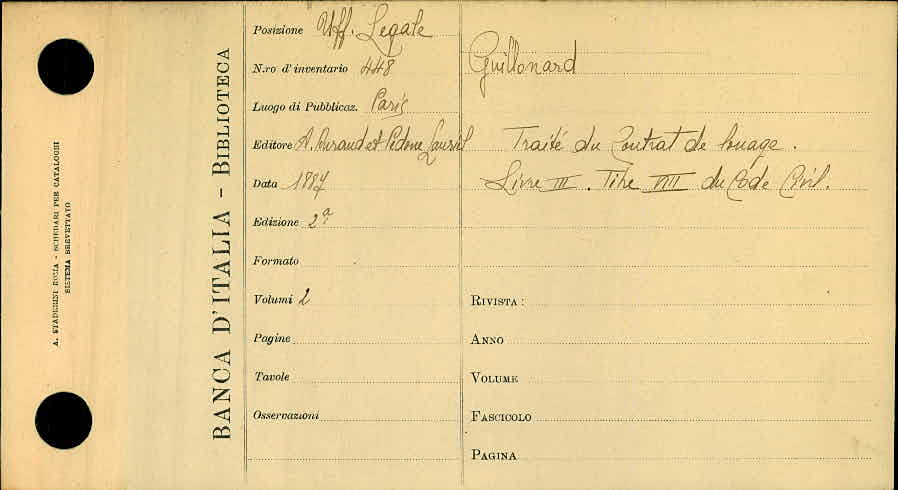 A. STADERINI ROMA - SCHEDARI PER CATALOGHI
SISTEMA BREVETTATO
BANCA D'ITALIA - BIBLIOTECA
Posizione Uff. Legale
N.ro d'inventario 448
Luogo di Pubblicaz. Paris
Editore A. Durand et Pedone Lauriel
Data 1887
Edizione 2ª
Formato
Volumi 2
Pagine
Tavole
Osservazioni
Guillonard
Traité du Contrat de louage.
Livre III. Titre VIII du Code Civil.
RIVISTA:
ANNO
VOLUME
FASCICOLO
PAGINA